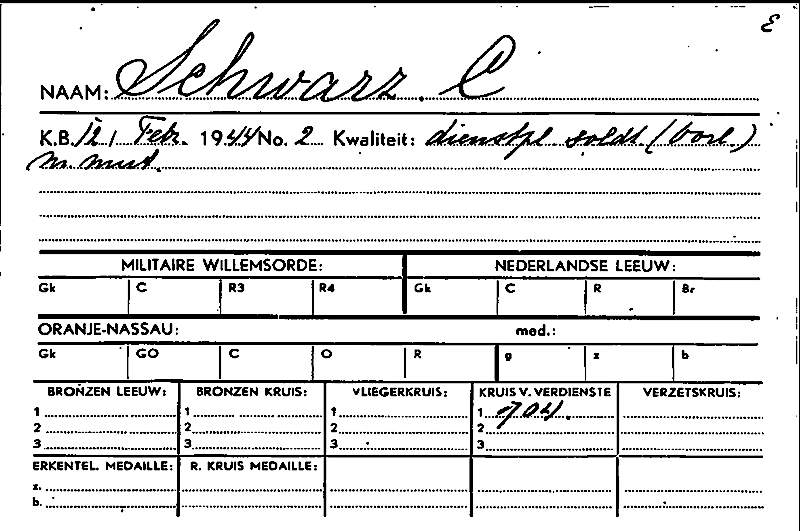 E
NAAM: Schwarz. C
K.B. 12 / Febr. 1944 No. 2 Kwaliteit: dienstpl. soldt (oorl.)
m. mut.
MILITAIRE WILLEMSORDE: NEDERLANDSE LEEUW:
Gk C R3 R4 Gk C R Br
ORANJE-NASSAU: med.:
Gk GO C O R g z b
BRONZEN LEEUW: BRONZEN KRUIS: VLIEGERKRUIS: KRUIS V. VERDIENSTE VERZETSKRUIS:
1 1 1 1 704.
2 2 2 2
3 3 3 3
ERKENTEL. MEDAILLE: R. KRUIS MEDAILLE:
z.
b.